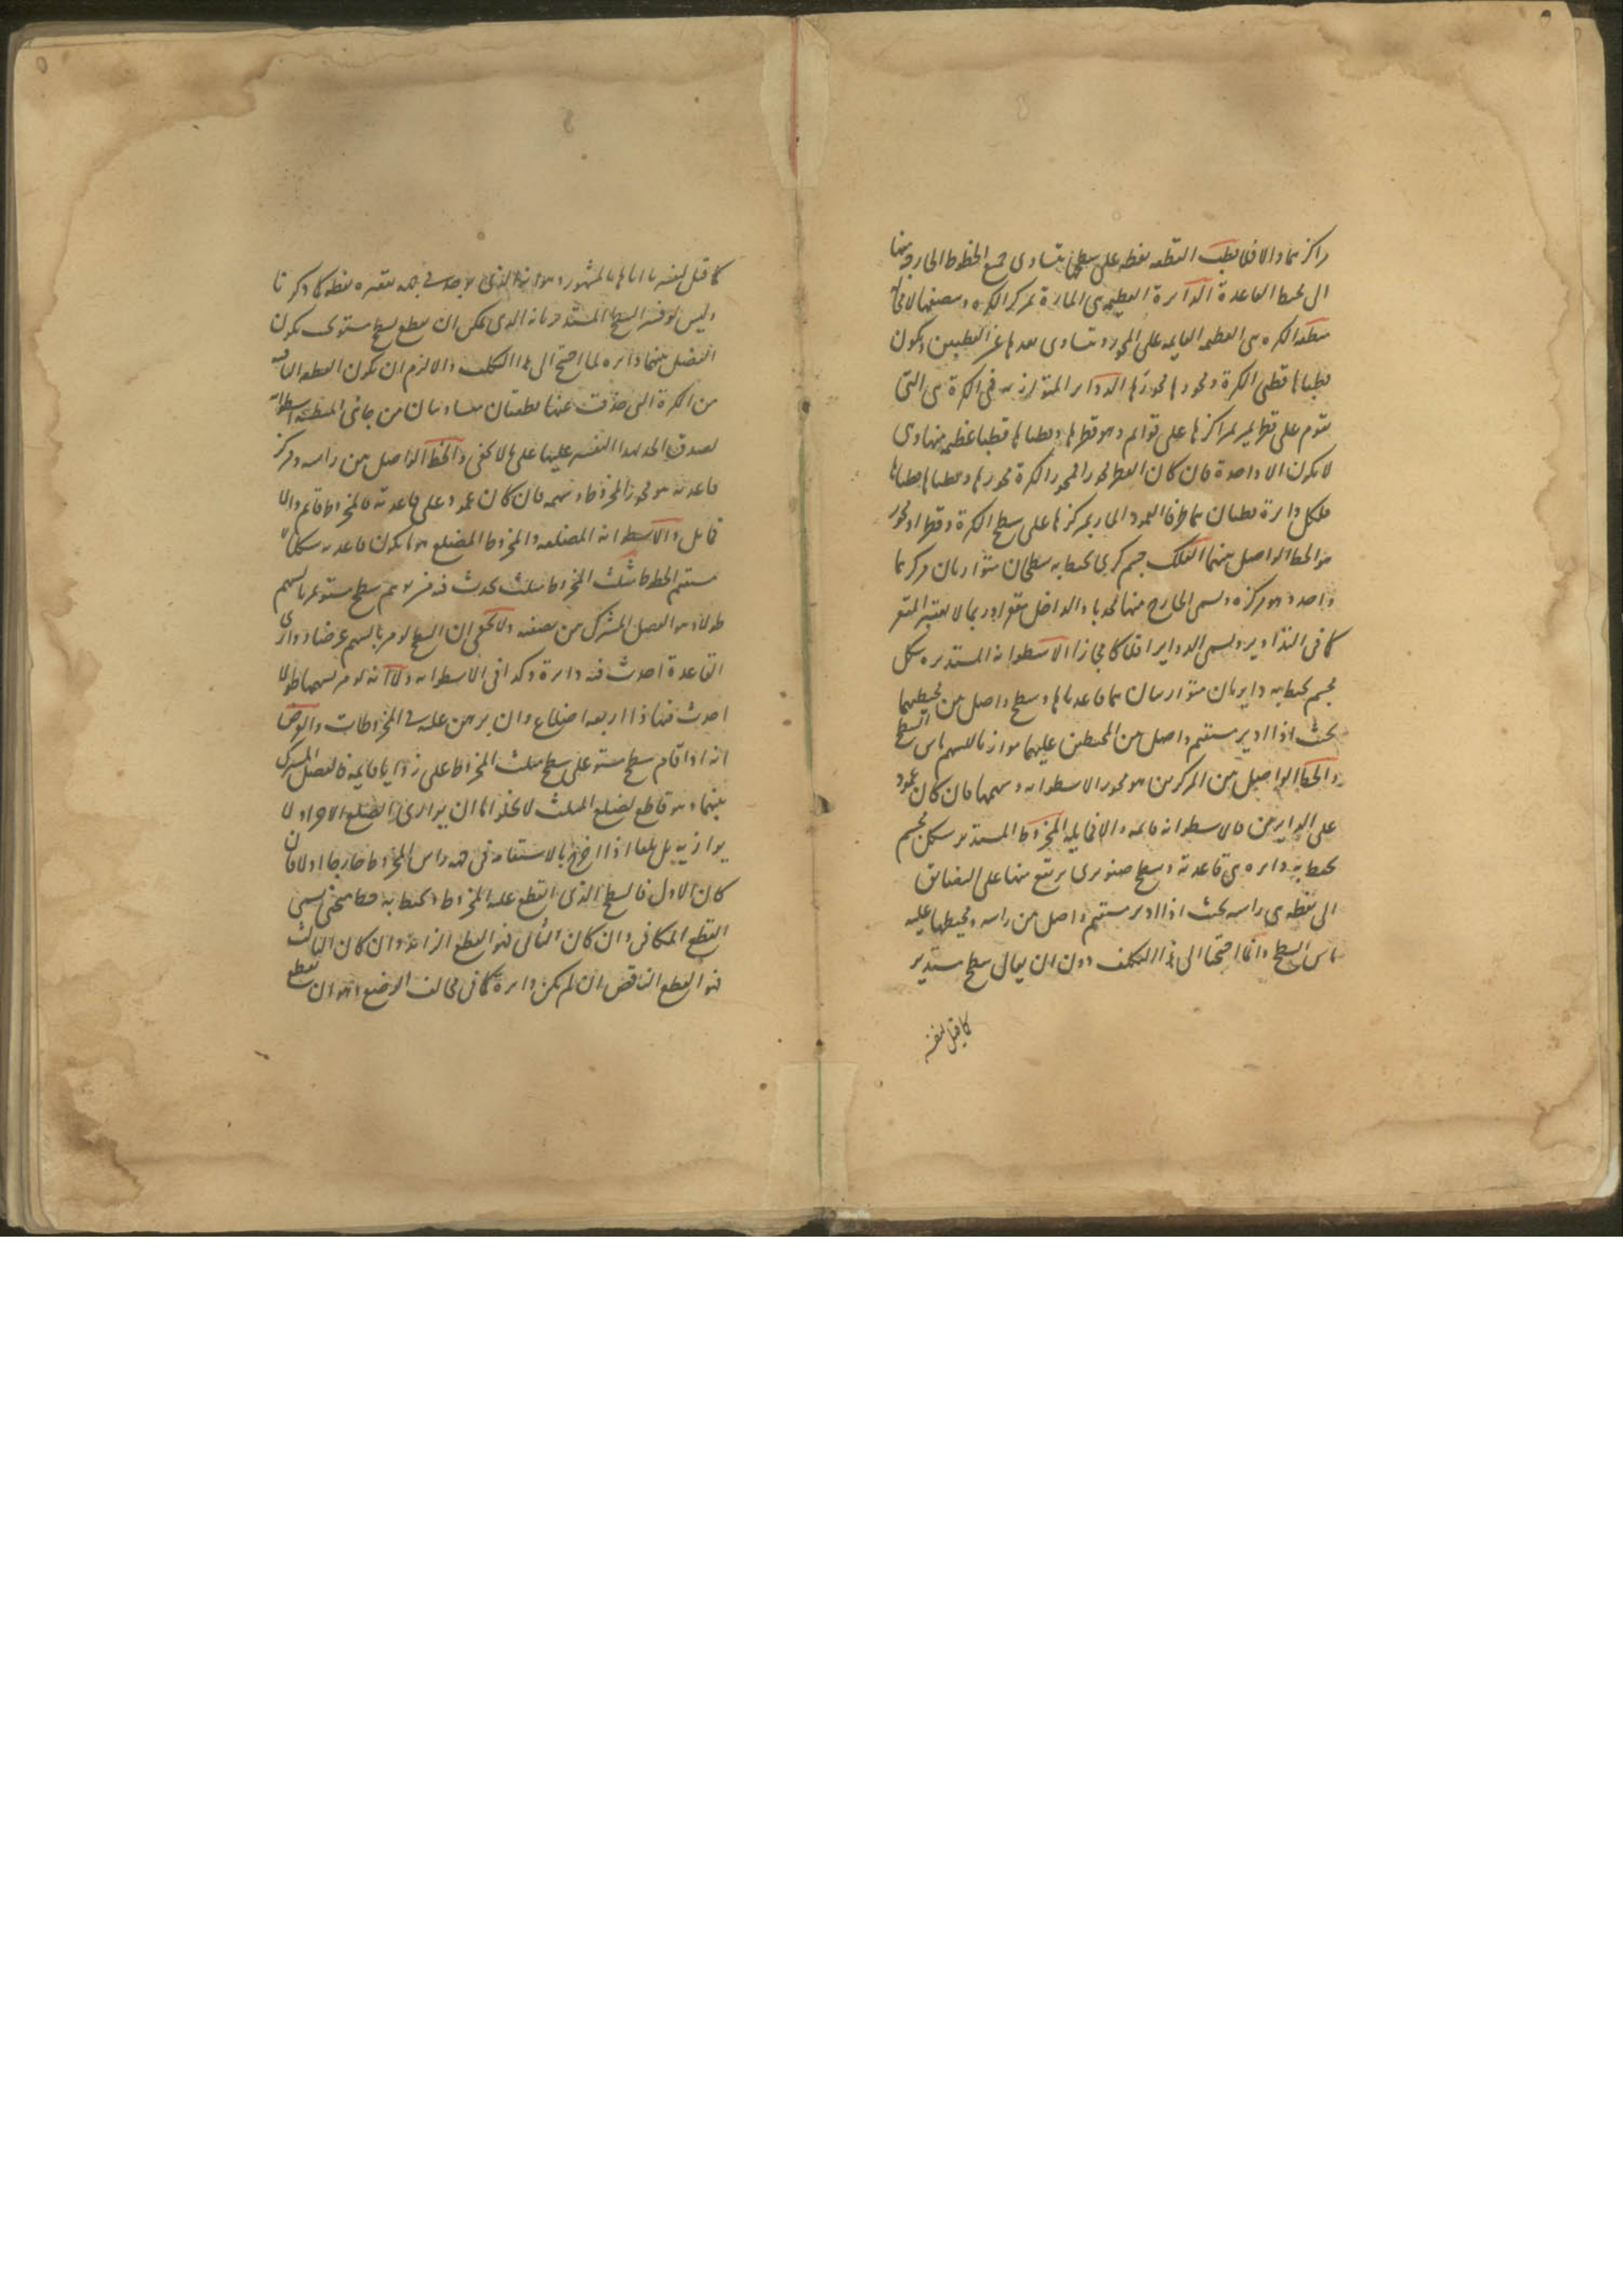 مراكزهما والا فلا قطب القطعه نقطه على سطحها يتساوى جميع الخطوط الخارجة منها
الى محيط القاعدة الدائرة العظيمه هى المارة بمركز الكره وينصفها لا محالة
منطقه الكره هى العظيمه القايمه على المحور و يتساوى بعدها عن القطبين ويكون
قطباها قطبى الكرة ومحورها محورها الدواير المتوازيه فى الكرة هى التى
يقوم على قطر يمر بمراكزها على قوائم وهو قطرها وقطباها قطبا عظيمه منها وهى
لا يكون الا واحدة فان كان القطر محور المحور الكرة محورها وقطباها قطباها
فلكل دايرة قطبان هما طرفا العمود المار بمركزها على سطح الكرة وقطر او محور
هو الخط الواصل بينهما الفلك جسم كرى يحيط به سطحان متوازيان مركزهما
واحد وهو مركزه ويسمى الخارج منها محدبا والداخل مقعرا وربما لا يعتبر المقعر
كما فى التداوير ويسمى الدواير افلاكا مجازا الاسطوانه المستديره شكل
مجسم يحيط به دايرتان متوازيتان هما قاعدتاها وسطح واصل بين محيطيهما
بحيث اذا ادير مستقيم واصل بين المحيطين عليهما موازيا للسهم ماس السطح
والخط الواصل بين المركزين هو محور الاسطوانه وسهمها فان كان عمودا
على الدايرتين فالاسطوانه قايمه والا فمايله المخروط المستدير شكل مجسم
يحيط به دايره هى قاعدته وسطح صنوبرى يرتفع منها على التضايق
الى نقطه هى راسه بحيث اذا ادير مستقيم واصل بين راسه ومحيطها عليه
ماس السطح وانما احتجنا الى هذا التكلف دون ان يقال سطح مستدير
كما قيل لنفسر
كما قيل لنفسر المشهور وهو الذى يوجد فى جهة تقعيره نقطه كما ذكرنا
وليس لو فسر السطح المستدير بانه الذى يمكن ان يقطع بسطح مستوى يكون
الفصل بينهما دايره لما احتج الى هذا التكلف والا لزم ان يكون القطعه الباقيه
من الكرة التى حذفت عنها قطعتان متساويتان من جانبى المنطقه اسطوانه
لصدق الحد بهذا التفسير عليها على ما لا يخفى والخط الواصل بين راسه ومركز
قاعدته هو محور المخروط وسهمه فان كان عمودا على قاعدته فالمخروط قايم والا
فمايل والاسطوانه المضلعه والمخروط المضلع هو ما يكون قاعدته شكلا
مستقيم الخطوط مثلث المخروط مثلث يحدث فيه من توهم سطح مستو يمر بالسهم
طولا وهو الفصل المشترك بين نصفيه ولا يخفى ان السطح لو مر بالسهم عرضا ووازى
القاعدة احدث فيه دايرة وكذا فى الاسطوانه والا انه لو مر بسهمها طولا
احدث فيها ذا اربعه اضلاع وان برهن عليه فى المخروطات والوضا
انه اذا قام سطح مستو على سطح مثلث المخروط على زوايا قايمه فالفصل المشترك
بينهما وهو قاطع لضلع المثلث لا يخلو اما ان يوازى الضلع الاخر او لا
يوازيه بل يلقاه اذا اخرج بالاستقامه فى جهه راس المخروط خارجا او لا فان
كان الاول فالسطح الذى انقطع عليه المخروط ويحيط به خط منحنى يسمى
القطع المكافى وان كان الثانى فهو القطع الزائد وان كان الثالث
فهو القطع الناقص ان لم يكن دايرة كما فى مخالف الاوضاع وهو ان يقطع